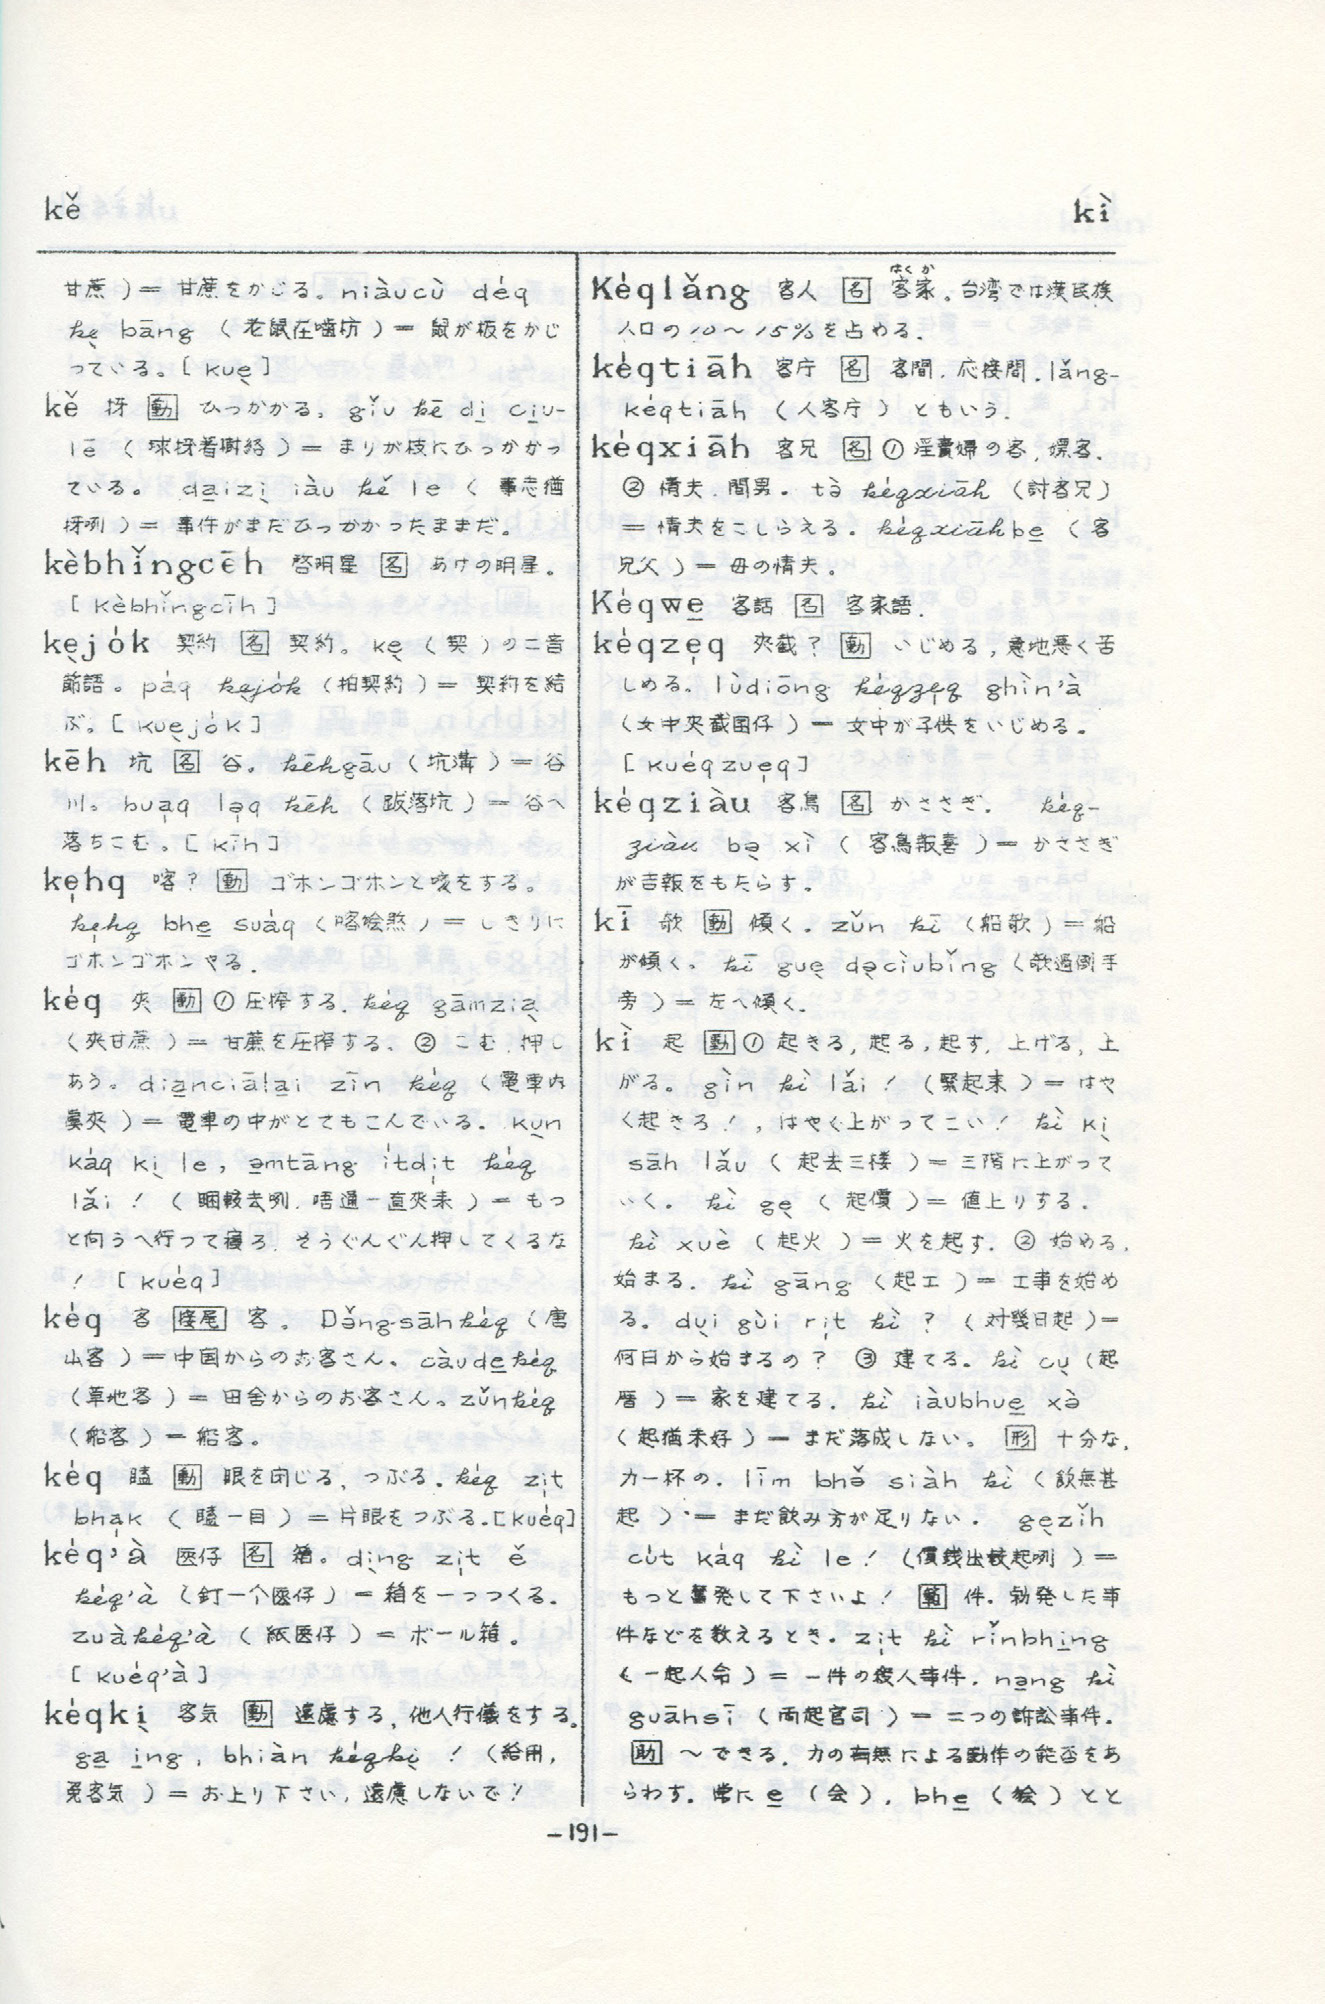 kě
kì
甘蔗)=甘蔗をかじる。niàucù déq
kẹ bāng (老鼠在嚙坊)=鼠が板をかじ
っている。[kuẹ]
kě 㧎 動 ひっかかる。gǐu kē di̱ ciu̱-
lē (球㧎着樹絡)=まりが枝にひっかかっ
ている。da̱izị iàu kě le (事志猶
㧎咧)=事件がまだひっかかったままだ。
kèbhǐngcēh 啓明星 名 あけの明星。
[kèbhǐngcīh]
kẹjók 契約 名 契約。kẹ (契)の二音
節語。páq kẹjók (拍契約)=契約を結
ぶ。[kuẹjók]
kēh 坑 名 谷。kēhgāu (坑溝)=谷
川。buạq lạq kēh (跋落坑)=谷へ
落ちこむ。[kīh]
kẹhq 喀? 動 ゴホンゴホンと咳をする。
kẹhq bhe̱ suáq (喀𣍐煞)=しきりに
ゴホンゴホンやる.
kéq 夾 動 ①圧搾する. kéq gāmziạ
(夾甘蔗)=甘蔗を圧搾する、②こむ,押し
あう。dia̱nciāla̱i zīn kéq (電車内
眞夾)=電車の中がとてもこんでいる。kụn
káq kị le, ə̱mtāng ítdịt kéq
lǎi! (睏較去咧,唔通一直夾来)=もっ
と向うへ行って寝ろ.そうぐんぐん押してくるな
! [kuéq]
kéq 客 接尾 客。Dǒng-sāhkéq (唐
山客)=中国からのお客さん。càude̱kéq
(草地客)=田舎からのお客さん。zǔnkéq
(船客)=船客。
kéq 瞌 動 眼を閉じる,つぶる。kéq zịt
bhạk (瞌一目)=片眼をつぶる.[kuéq]
kéq'à 医仔 名 箱。dịng zịt ě
kéq'à (釘一个医仔)=箱を一つつくる。
zuàkéq'à (紙医仔)=ボール箱。
[kuéq'à]
kéqkị 客気 動 遠慮する,他人行儀をする。
ga̱ i̱ng, bhiàn kéqkị! (給用,
免客気)=お上り下さい,遠慮しないで!
Kéqlǎng 客人 名 客家(はくか)。台湾では漢民族
人口の10〜15%を占める.
kéqtiāh 客庁 名 客間.応接間.lǎng-
kéqtiāh (人客庁)ともいう.
kéqxiāh 客兄 名 ①淫賣婦の客,嫖客.
②情夫.間男。tə̀ kéqxiāh (討客兄)
=情夫をこしらえる。kéqxiāhbe̱ (客
兄父)=母の情夫。
Kéqwe̱ 客話 名 客家語.
kéqzẹq 夾截? 動 いじめる,意地悪く苦
しめる。lùdiōng kéqzẹq ghìn'à
(女中夾截囝仔)=女中が子供をいじめる。
[kuéqzuẹq]
kéqziàu 客鳥 名 かささぎ。kéq-
ziàu bə̣ xì (客鳥報喜)=かささぎ
が吉報をもたらす。
kī 欹 動 傾く。zǔn kī (船欹)=船
が傾く。kī guẹ də̣cìubǐng (欹過倒手
旁)=左へ傾く.
kì 起 動 ①起きる,起る,起す,上げる,上
がる。gìn kì lǎi! (緊起来)=はや
く起きろ!,はやく上がってこい! kì kị
sāh lǎu (起去三楼)=三階に上がって
いく。kì gẹ (起價)=値上りする.
kì xuè (起火)=火を起す.②始める,
始まる。kì gāng (起工)=工事を始め
る。dụi gùi rịt kì? (対幾日起)=
何日から始まるの? ③建てる。kì cụ (起
厝)=家を建てる。kì iàubhue̱ xə̀
(起猶未好)=まだ落成しない。形 十分な,
力一杯の.līm bhə̌ siàh kì (飲無甚
起)=まだ飲み方が足りない。gẹzǐh
cút káq kì le! (價銭出較起咧)=
もっと奮発して下さいよ! 範 件.勃発した事
件などを数えるとき。zịt kì rǐnbhi̱ng
(一起人命)=一件の殺人事件.nə̱ng kì
guāhsī (両起官司)=二つの訴訟事件.
助 〜できる.力の有無による動作の能否をあ
らわす。常にe̱ (会), bhe̱ (𣍐)とと
—191—